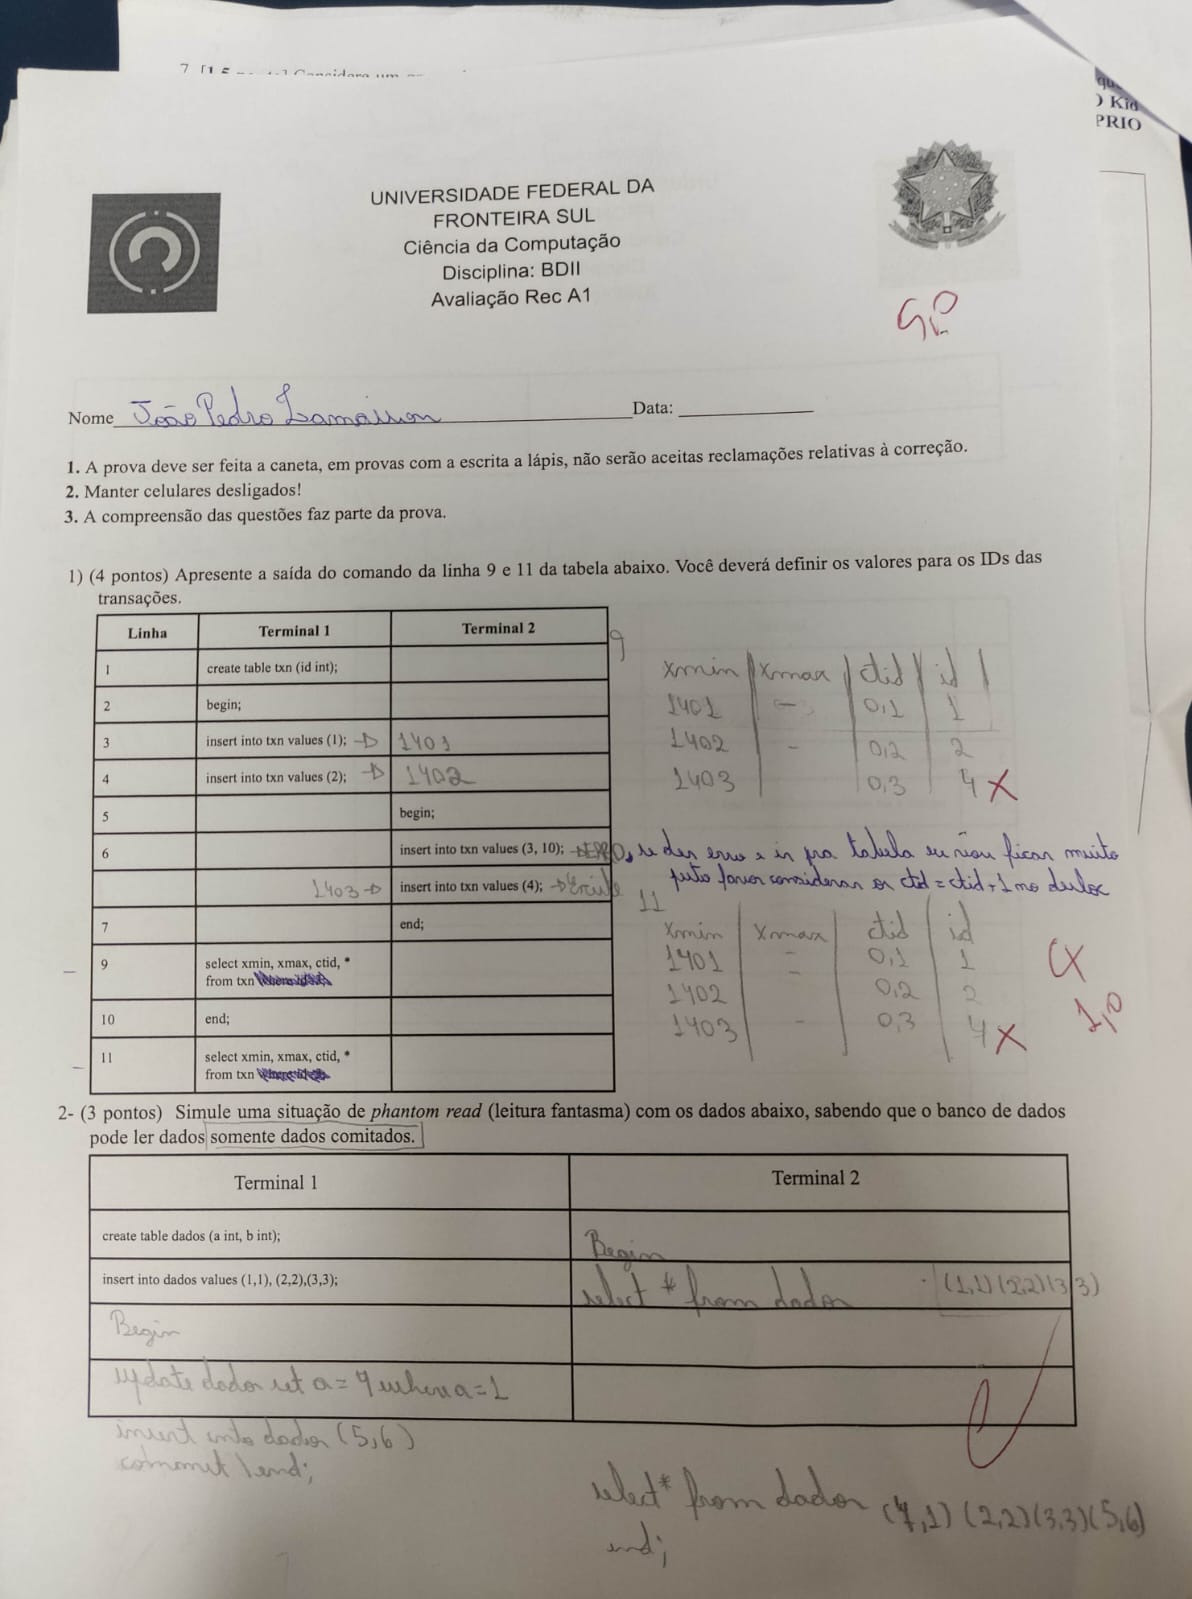 qu
) Kid
PRIO
UNIVERSIDADE FEDERAL DA
FRONTEIRA SUL
Ciência da Computação
Disciplina: BDII
Avaliação Rec A1
Nome João Pedro Data:
1. A prova deve ser feita a caneta, em provas com a escrita a lápis, não serão aceitas reclamações relativas à correção.
2. Manter celulares desligados!
3. A compreensão das questões faz parte da prova.
1) (4 pontos) Apresente a saída do comando da linha 9 e 11 da tabela abaixo. Você deverá definir os valores para os IDs das
transações.
Linha Terminal 1 Terminal 2
1 create table txn (id int);
2 begin;
3 insert into txn values (1); 1401
4 insert into txn values (2); 1402
5 begin;
6 insert into txn values (3, 10); ERRO, se der erro e ir pra tabela eu vou ficar muito
puto favor considerar os ctid = ctid + 1 no
1403 insert into txn values (4);
7 end;
9 select xmin, xmax, ctid, *
from txn
10 end;
11 select xmin, xmax, ctid, *
from txn
9
xmin xmax ctid id
1401 - 0,1 1
1402 - 0,2 2
1403 0,3 4 X
11
xmin xmax ctid id
1401 - 0,1 1
1402 - 0,2 2
1403 - 0,3 4 X
1,0
2- (3 pontos) Simule uma situação de phantom read (leitura fantasma) com os dados abaixo, sabendo que o banco de dados
pode ler dados somente dados comitados.
Terminal 1 Terminal 2
create table dados (a int, b int); Begin
insert into dados values (1,1), (2,2),(3,3); select * from dados (1,1) (2,2) (3,3)
Begin
update dados set a = 4 where a = 1
insert into dados (5,6)
commit \ end;
select * from dados (4,1) (2,2) (3,3) (5,6)
end;